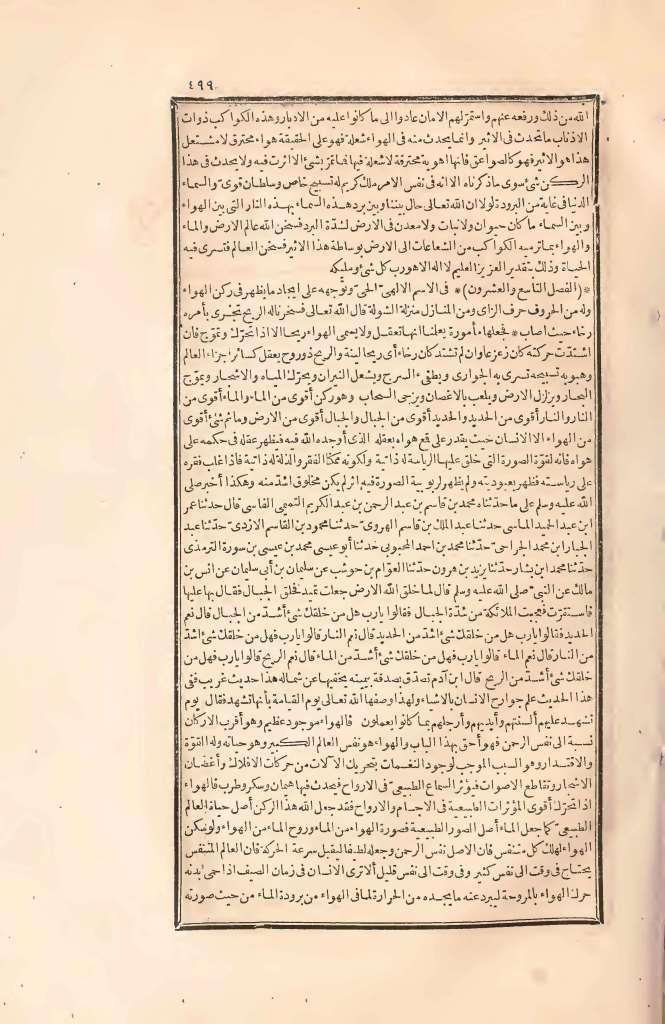 ٤٩٩
الله من ذلك ورفعه عنهم واستمرّ لهم الامان عادوا الى ما كانوا عليه من الادبار وهذه الكواكب ذوات
الاذناب ما تحدث فى الاثير وانما يحدث منه فى الهواء شعلة فهو على الحقيقة هواء محترق لا مشتعل
هذا هو الاثير فهو كالصواعق فانها اهوية محترقة لا شعلة فيها فما تمرّ بشئ الا اثرت فيه ولا يحدث فى هذا
الركن شئ سوى ما ذكرناه الا انه فى نفس الامر ملك كريم له تسبيح خاص وسلطان قوىّ والسماء
الدنيا فى غاية من البرودة لولا ان الله تعالى حال بيننا وبين برد هذه السماء بهذه النار التى بين الهواء
وبين السماء ما كان حيوان ولا نبات ولا معدن فى الارض لشدّة البرد فسخن الله عالم الارض والماء
والهواء بما ترميه الكواكب من الشعاعات الى الارض بوساطة هذا الاثير فسخن العالم فتسرى فيه
الحياة وذلك بتقدير العزيز العليم لا اله الا هو رب كل شئ ومليكه
*(الفصل التاسع والعشرون)* فى الاسم الالهىّ الحىّ وتوجهه على ايجاد ما يظهر فى ركن الهواء
وله من الحروف حرف الزاى ومن المنازل منزلة الشولة قال الله تعالى فسخرنا له الريح تجرى بأمره
رخاء حيث اصاب * فجعلها مأمورة يعلمنا انها تعقل ولا يسمى الهواء ريحا الا اذا تحرّك وتموّج فان
اشتدّت حركته كان زعزعا وان لم تشتد كان رخاء أى ريحا لينة والريح ذو روح يعقل كسائر اجزاء العالم
وهبوبه تسبيحه تسرى به الجوارى ويطفئ السرج ويشعل النيران ويحرّك المياه والاشجار ويموّج
البحار ويزلزل الارض ويلعب بالاغصان ويزجى السحاب وهو ركن أقوى من الماء والماء أقوى من
النار والنار أقوى من الحديد والحديد أقوى من الجبال والجبال أقوى من الارض وما ثم شئ أقوى
من الهواء الا الانسان حيث يقدر على قمع هواه بعقله الذى أوجده الله فيه فيظهر عقله فى حكمه على
هواه فانه لقوّة الصورة التى خلق عليها الرياسة له ذاتية ولكونه ممكنا الفقر والذلة له ذاتية فاذا غلب فقره
على رياسته فظهر بعبوديته ولم يظهر لربوبية الصورة فيه اثر لم يكن مخلوق اشدّ منه وهكذا أخبر صلى
الله عليه وسلم على ما حدّثناه محمد بن قاسم بن عبد الرحمن بن عبد الكريم التميمى الفاسى قال حدّثنا عمر
ابن عبد المجيد الميانشى حدّثنا عبد الملك بن قاسم الهروىّ حدّثنا محمود بن القاسم الازدىّ حدّثنا عبد
الجبار ابن محمد الجراحىّ حدّثنا محمد بن احمد المحبوبى حدّثنا أبو عيسى محمد بن عيسى بن سورة الترمذى
حدّثنا محمد ابن بشار حدّثنا يزيد بن هرون حدّثنا العوّام بن حوشب عن سليمان بن أبى سليمان عن انس بن
مالك عن النبىّ صلى الله عليه وسلم قال لما خلق الله الارض جعلت تميد فخلق الجبال فقال بها عليها
فاستقرّت فعجبت الملائكة من شدّة الجبال فقالوا يا رب هل من خلقك شئ أشدّ من الجبال قال نعم
الحديد فقالوا يا رب هل من خلقك شئ اشدّ من الحديد قال نعم النار قالوا يا رب فهل من خلقك شئ اشدّ
من النار قال نعم الماء قالوا يا رب فهل من خلقك شئ أشدّ من الماء قال نعم الريح قالوا يا رب فهل من
خلقك شئ أشدّ من الريح قال ابن آدم تصدّق بصدقة بيمينه يخفيها عن شماله هذا حديث غريب ففى
هذا الحديث علم جوارح الانسان بالاشياء ولهذا وصفها الله تعالى يوم القيامة بأنها تشهد فقال يوم
تشهد عليهم ألسنتهم وأيديهم وأرجلهم بما كانوا يعملون فالهواء موجود عظيم وهو أقرب الاركان
نسبة الى نفس الرحمن فهو أحق بهذا الباب والهواء هو نفس العالم الكبير وهو حياته وله القوّة
والاقتدار وهو السبب الموجب لوجود النغمات بتحريك الآلات من حركات الافلاك وأغصان
الاشجار وتقاطع الاصوات فيؤثر السماع الطبيعىّ فى الارواح فيحدث فيها هيمان وسكر وطرب فالهواء
اذا تحرّك أقوى المؤثرات الطبيعية فى الاجسام والارواح فقد جعل الله هذا الركن أصل حياة العالم
الطبيعىّ كما جعل الماء أصل الصور الطبيعية فصورة الهواء من الماء وروح الماء من الهواء ولو سكن
الهواء لهلك كل متنفس فان الاصل نفس الرحمن وجعله لطيفا ليقبل سرعة الحركة فان العالم المتنفس
يحتاج فى وقت الى نفس كثير وفى وقت الى نفس قليل ألا ترى الانسان فى زمان الصيف اذا حمى بدنه
حرك الهواء بالمروحة ليبرد عنه ما يجده من الحرارة لما فى الهواء من برودة الماء من حيث صورته